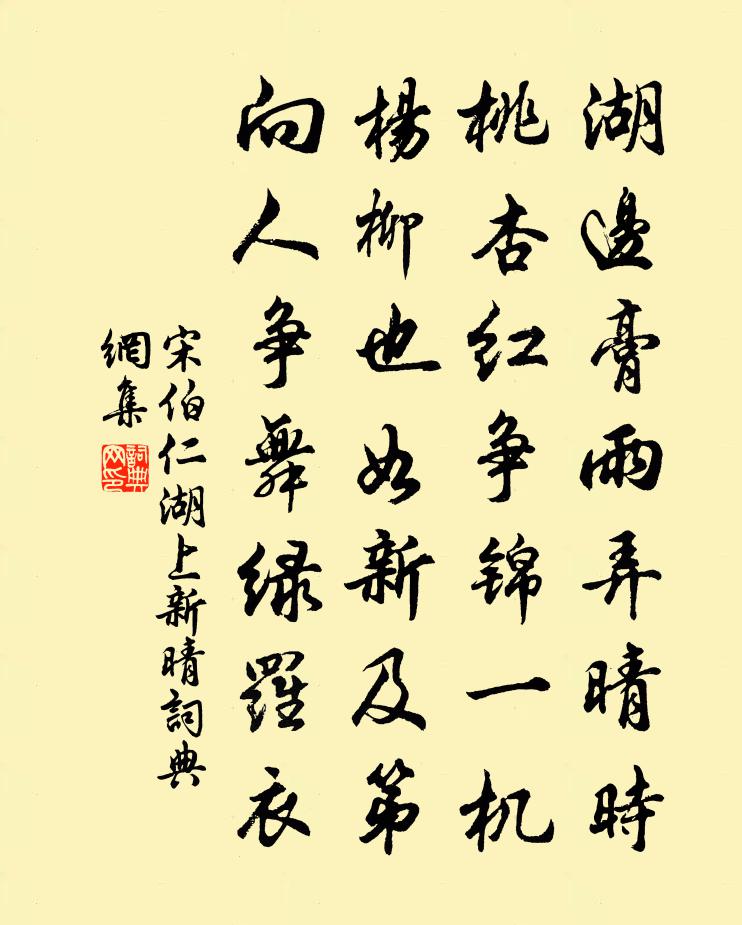 湖邊膏雨弄晴時
桃杏红争锦一机
楊柳也如新及第
向人争舞绿羅衣
宋伯仁湖上新晴詞典
網集
詞典
网印